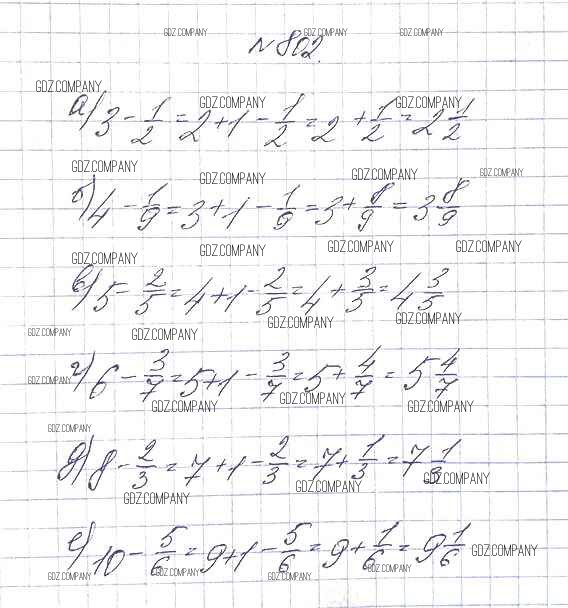 GDZ.COMPANY GDZ.COMPANY GDZ.COMPANY
№802.
GDZ.COMPANY GDZ.COMPANY GDZ.COMPANY
а) 3 - 1/2 = 2 + 1 - 1/2 = 2 + 1/2 = 2 1/2
GDZ.COMPANY GDZ.COMPANY GDZ.COMPANY GDZ.COMPANY
б) 4 - 1/9 = 3 + 1 - 1/9 = 3 + 8/9 = 3 8/9
GDZ.COMPANY GDZ.COMPANY GDZ.COMPANY GDZ.COMPANY
в) 5 - 2/5 = 4 + 1 - 2/5 = 4 + 3/5 = 4 3/5
GDZ.COMPANY GDZ.COMPANY GDZ.COMPANY GDZ.COMPANY
г) 6 - 3/7 = 5 + 1 - 3/7 = 5 + 4/7 = 5 4/7
GDZ.COMPANY GDZ.COMPANY GDZ.COMPANY GDZ.COMPANY
GDZ.COMPANY
д) 8 - 2/3 = 7 + 1 - 2/3 = 7 + 1/3 = 7 1/3
GDZ.COMPANY GDZ.COMPANY GDZ.COMPANY
е) 10 - 5/6 = 9 + 1 - 5/6 = 9 + 1/6 = 9 1/6
GDZ.COMPANY
GDZ.COMPANY GDZ.COMPANY GDZ.COMPANY GDZ.COMPANY